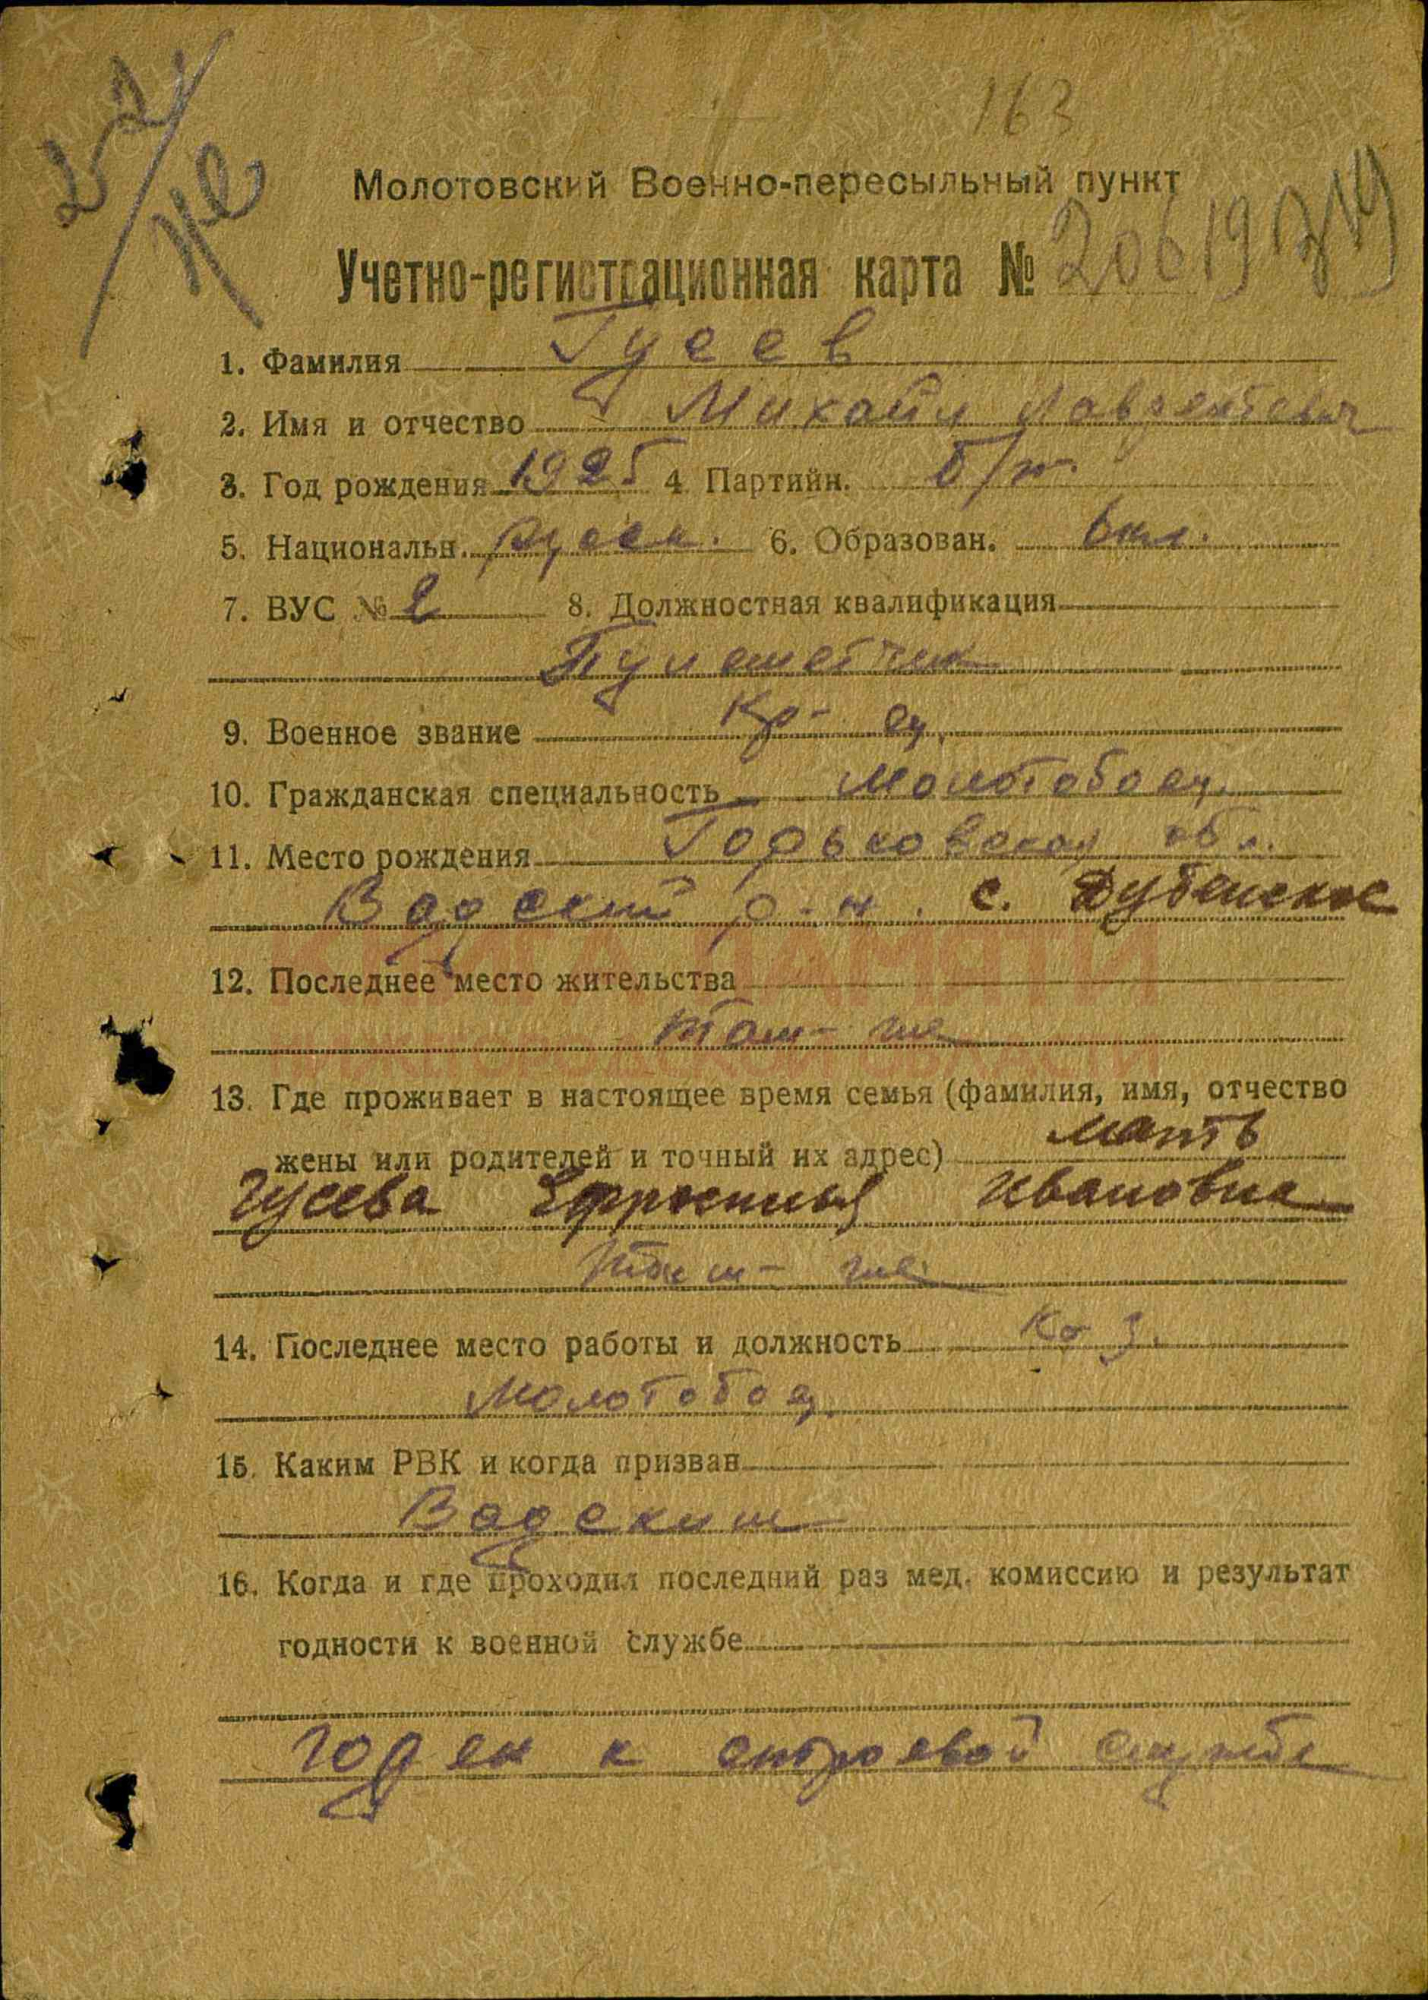 163
Молотовский Военно-пересыльный пункт
Учетно-регистрационная карта № 20619
1. Фамилия Гусев
2. Имя и отчество Михаил Лаврентевич
3. Год рождения 1925 4. Партийн. б/п.
5. Националын. русск. 6. Образован. 6 кл.
7. ВУС № 2 8. Должностная квалификация
Пулеметчик
9. Военное звание Кр-ец.
10. Гражданская специальность Молотобоец.
11. Место рождения Горьковская обл.
Вадский р-н. с. Дубенское
12. Последнее место жительства
там-же
13. Где проживает в настоящее время семья (фамилия, имя, отчество
жены или родителей и точный их адрес) мать
Гусева Ефросинья Ивановна
там-же
14. Последнее место работы и должность
Молотобоец.
15. Каким РВК и когда призван
Вадским
16. Когда и где проходил последний раз мед. комиссию и результат
годности к военной службе
годен к строевой службе
КНИГА ПАМЯТИ
НИЖЕГОРОДСКОЙ ОБЛАСТИ
ПАМЯТЬ НАРОДА